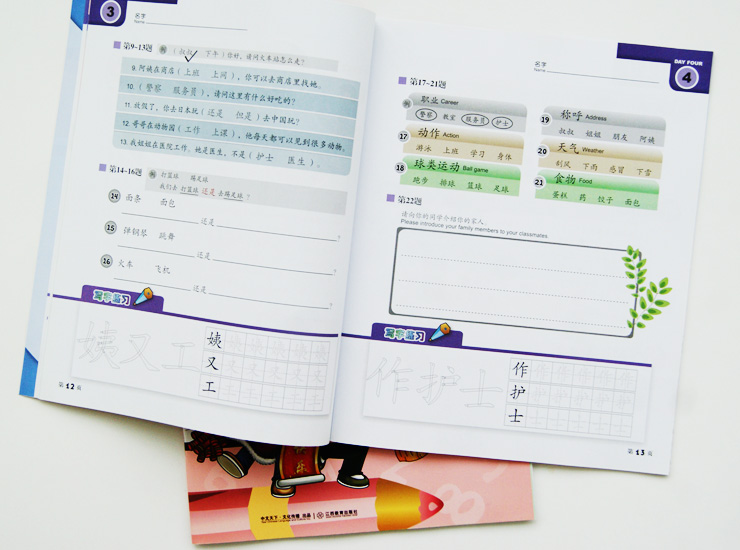 3
名字
Name
第9-13题 例 (叔叔 下午)你好,请问火车站怎么走?
9. 阿姨在商店(上班 上网),你可以去商店里找她。
10. (警察 服务员),请问这里有什么好吃的?
11. 放假了,你去日本玩(还是 但是)去中国玩?
12. 哥哥在动物园(工作 上课),他每天都可以见到很多动物。
13. 我姐姐在医院工作。她是医生,不是(护士 医生)。
第14-16题 例 打篮球 踢足球
我们去打篮球还是去踢足球?
14 面条 面包
还是 。
15 弹钢琴 跳舞
还是 。
16 火车 飞机
还是 。
写字练习
姨又工
姨
又
工
第12页
DAY FOUR
4
名字
Name
第17-21题
例 职业 Career
警察 教室 服务员 护士
17 动作 Action
游泳 上班 学习 身体
18 球类运动 Ball game
跑步 排球 篮球 足球
19 称呼 Address
叔叔 姐姐 朋友 阿姨
20 天气 Weather
刮风 下雨 感冒 下雪
21 食物 Food
蛋糕 药 饺子 面包
第22题
请向你的同学介绍你的家人。
Please introduce your family members to your classmates.
写字练习
作护士
作
护
士
第13页
江西教育出版社